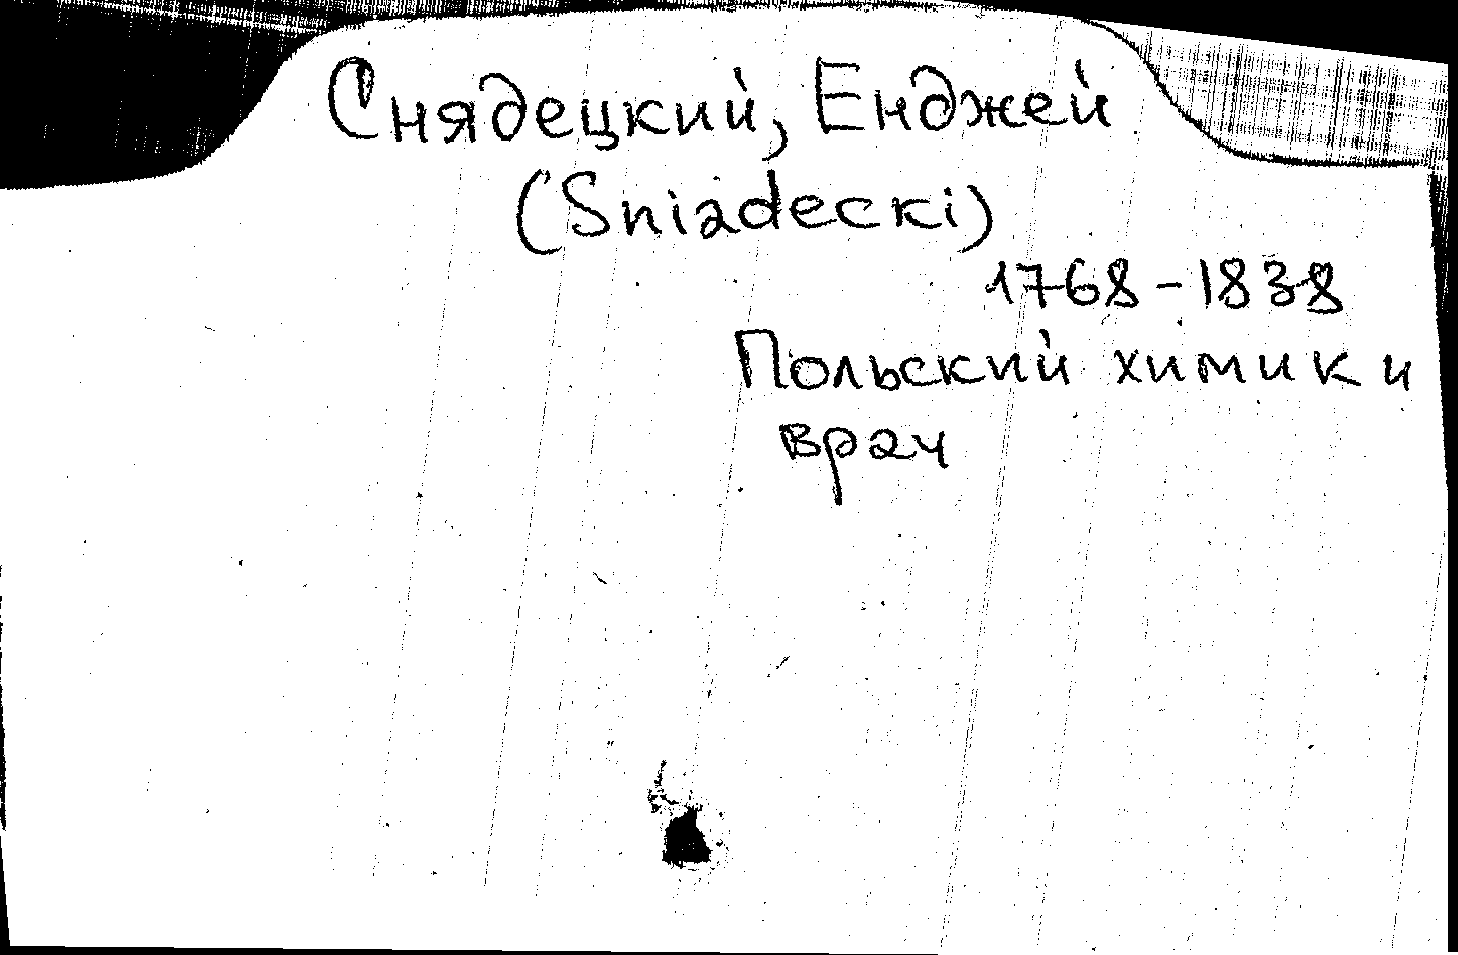 Снядецкий, Енджей
(Sniadecki)
1768-1838
Польский химик и
врач